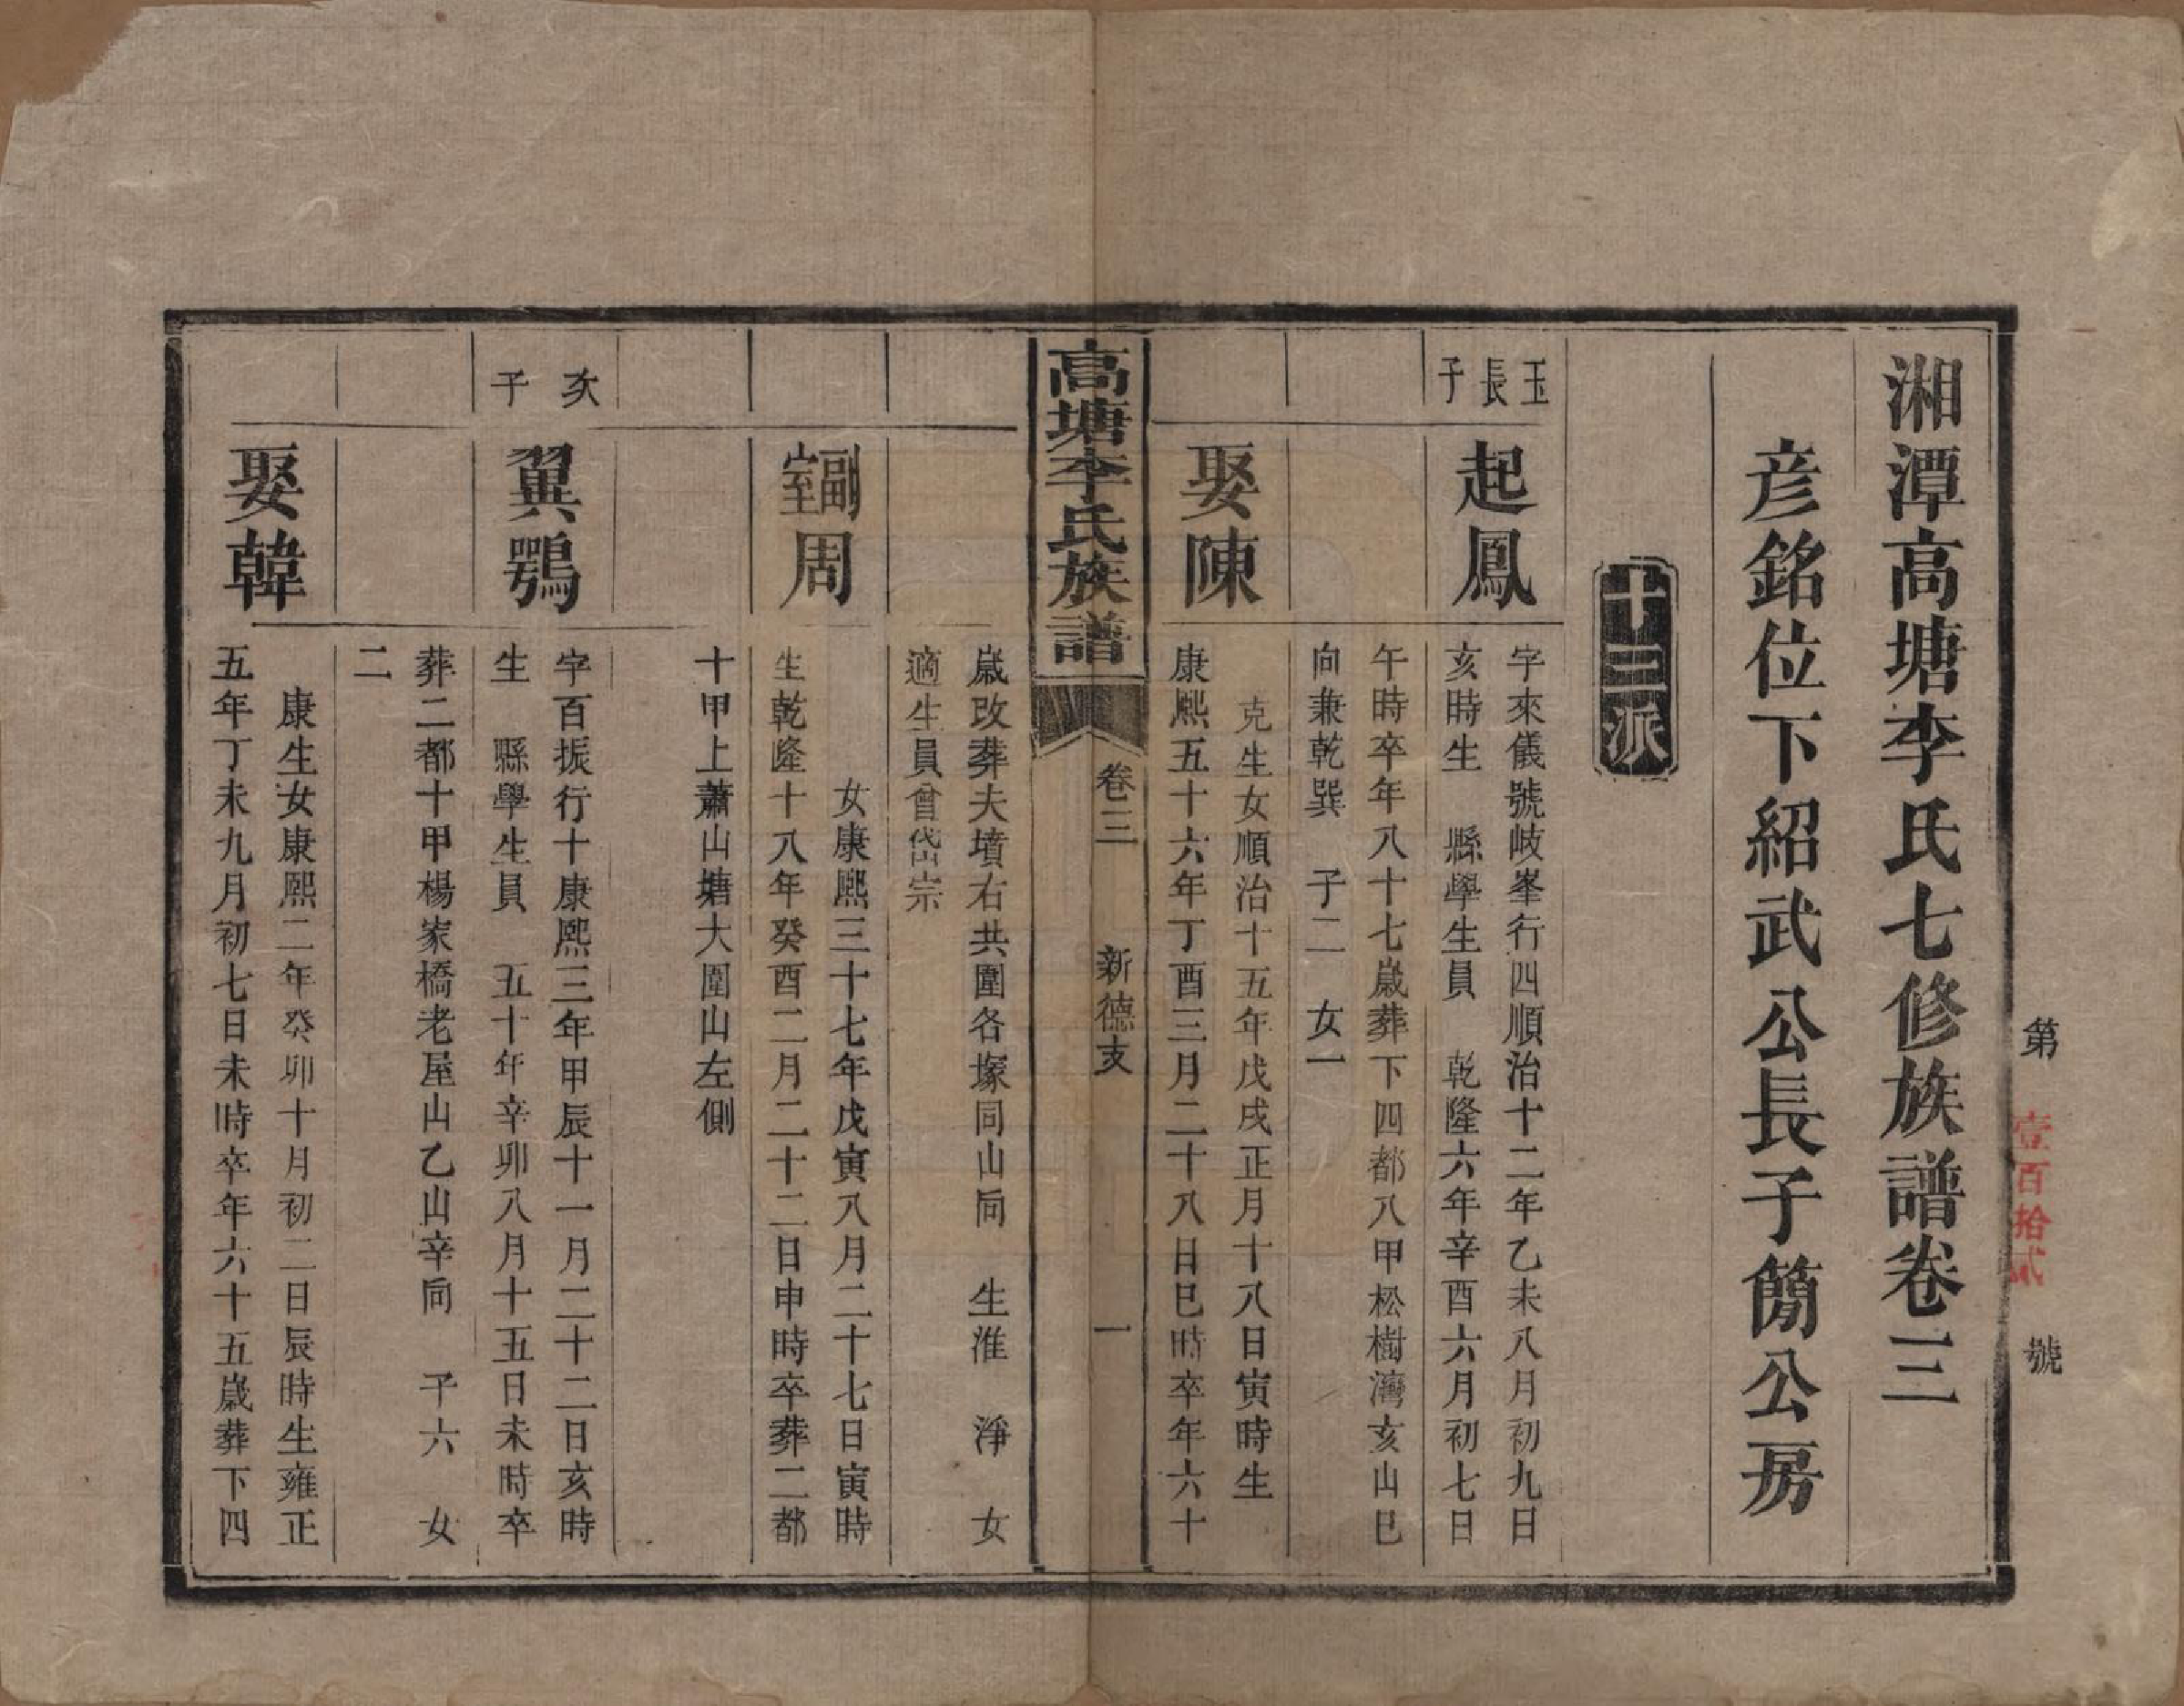 第　壹百拾貳　號
湘潭高塘李氏七修族譜卷三
彦銘位下紹武公長子簡公房
十三派
玉長子
起鳳
字來儀號岐峯行四順治十二年乙未八月初九日
亥時生　縣學生員　乾隆六年辛酉六月初七日
午時卒年八十七歲葬下四都八甲松樹灣亥山巳
向兼乾巽　子二　女一
娶陳
克生女順治十五年戊戌正月十八日寅時生
康熙五十六年丁酉三月二十八日巳時卒年六十
高塘李氏族譜　卷三　新德支　一
歲改葬夫墳右共圍各塚同山向　生淮　淨　女
適生員曾岱宗
副室周
女康熙三十七年戊寅八月二十七日寅時
生乾隆十八年癸酉二月二十二日申時卒葬二都
十甲上蕭山塘大圍山左側
次子
翼鶚
字百振行十康熙三年甲辰十一月二十二日亥時
生　縣學生員　五十年辛卯八月十五日未時卒
葬二都十甲楊家橋老屋山乙山辛向　子六　女
二
娶韓
康生女康熙二年癸卯十月初二日辰時生雍正
五年丁未九月初七日未時卒年六十五歲葬下四